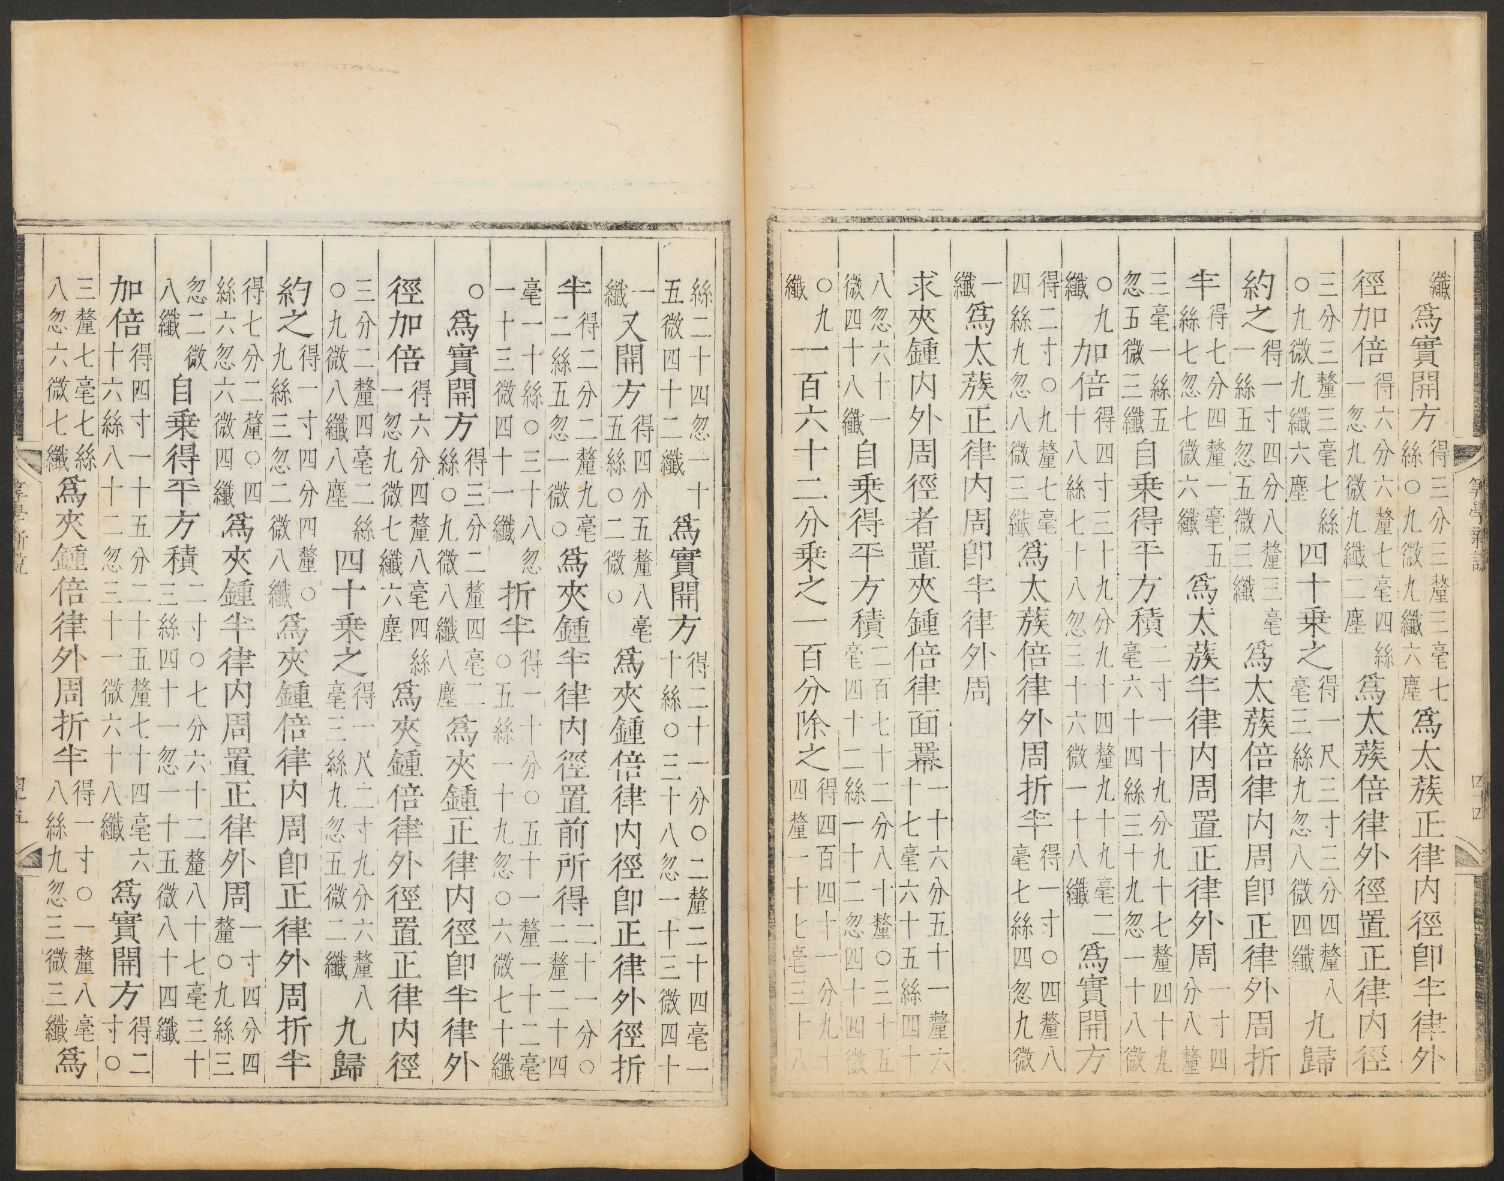 纖爲實開方得三分三釐三毫七絲○九微九纖六塵爲太蔟正律內徑卽半律外
徑加倍得六分六釐七毫四絲一忽九微九纖二塵爲太蔟倍律外徑置正律內徑
三分三釐三毫七絲○九微九纖六塵四十乘之得一尺三寸三分四釐八毫三絲九忽八微四纖九歸
約之得一寸四分八釐三毫一絲五忽五微三纖爲太蔟倍律內周卽正律外周折
半得七分四釐一毫五絲七忽七微六纖爲太蔟半律內周置正律外周一寸四分八釐
三毫一絲五忽五微三纖自乘得平方積二寸一十九分九十七釐四十九毫六十四絲三十九忽一十八微
○九纖加倍得四寸三十九分九十四釐九十九毫二十八絲七十八忽三十六微一十八纖爲實開方
得二寸○九釐七毫四絲九忽八微三纖爲太蔟倍律外周折半得一寸○四釐八毫七絲四忽九微
一纖爲太蔟正律內周卽半律外周
求夾鍾內外周徑者置夾鍾倍律面羃一十六分五十一釐六十七毫六十五絲四十
八忽六十一微四十八纖自乘得平方積二百七十二分八十釐○三十五毫四十二絲一十二忽四十四微
○九纖一百六十二分乘之一百分除之得四百四十一分九四釐一十七毫三十八
算學新說
四十四
絲二十四忽一十五微四十二纖爲實開方得二十一分○二釐二十四毫一十絲○三十八忽一十三微四十
一纖又開方得四分五釐八毫五絲○二微○爲夾鍾倍律內徑卽正律外徑折
半得二分二釐九毫二絲五忽一微○爲夾鍾半律內徑置前所得二十一分○二釐二十四
毫一十絲○三十八忽一十三微四十一纖折半得一十分○五十一釐一十二毫○五絲一十九忽○六微七十纖
○爲實開方得三分二釐四毫二絲○九微八纖八塵爲夾鍾正律內徑卽半律外
徑加倍得六分四釐八毫四絲一忽九微七纖六塵爲夾鍾倍律外徑置正律內徑
三分二釐四毫二絲○九微八纖八塵四十乘之得一尺二寸九分六釐八毫三絲九忽五微二纖九歸
約之得一寸四分四釐○九絲三忽二微八纖爲夾鍾倍律內周卽正律外周折半
得七分二釐○四絲六忽六微四纖爲夾鍾半律內周置正律外周一寸四分四釐○九絲三
忽二微八纖自乘得平方積二寸○七分六十二釐八十七毫三十三絲四十一忽一十五微八十四纖
加倍得四寸一十五分二十五釐七十四毫六十六絲八十二忽三十一微六十八纖爲實開方得二寸○
三釐七毫七絲八忽六微七纖爲夾鍾倍律外周折半得一寸○一釐八毫八絲九忽三微三纖爲
算學新說
四十五